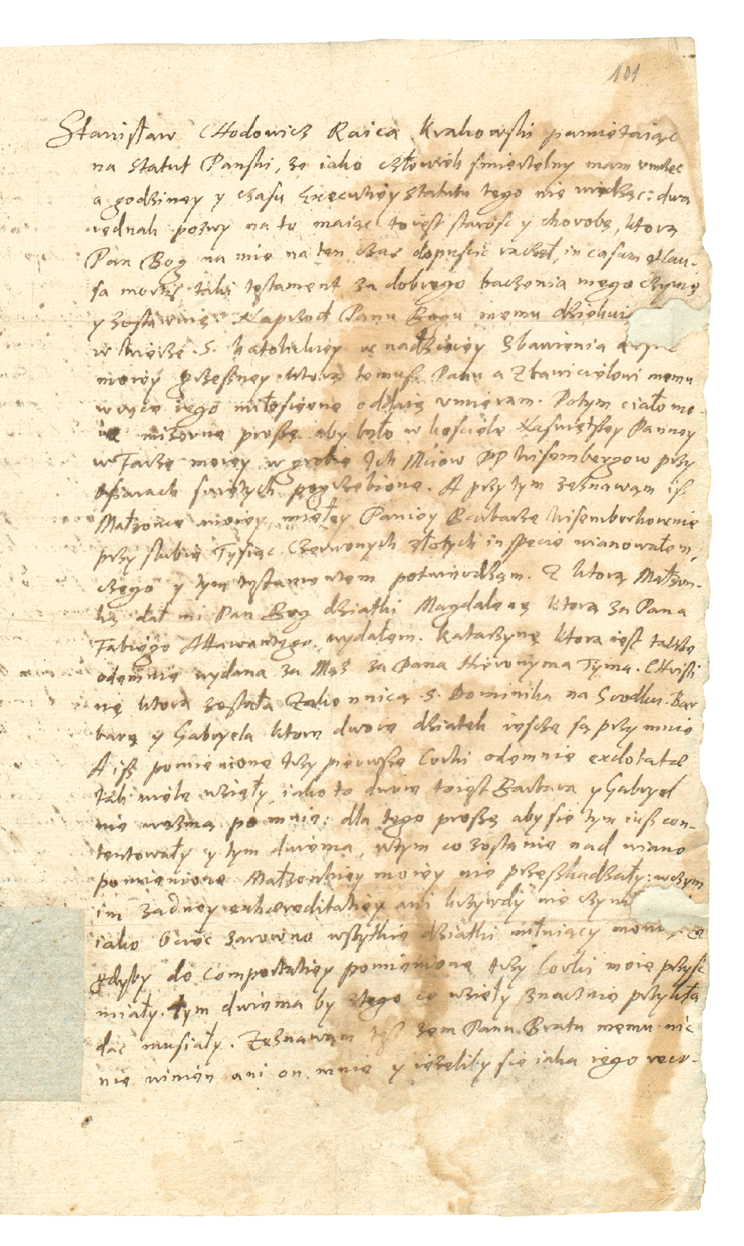 101
Stanisław CHodowicz Raica Krakowski pamiętaiąc
na Statut Panski, że iako człowiek smiertelny mam umrzec
a godziney y czasu Executiey Statutu tego nie wiedząc: dwa
iednak pozwy na to maiąc to iest starość y chorobę, ktorą
Pan Bog na mię na ten czas dopuscic raczył, in casum et cau-
sa mortis taki testament za dobrego baczenia mego czynię
y zostawuię. Naprzod Panu Bogu memu dziękuię
w wierze S. katolickiey w nadzieiey zbawienia duszę
moiey grzeszney ktorą temusz Panu a Zbawicielowi memu
w ręce iego miłosierne oddaię umieram. Potym ciało mo-
ie mizerne proszę aby było w kosciele Naswiętszey Panney
w Farze moiey w grobie Ich Mciow PP Wisembergow przy
ofiarach swiętych pogrzebione. A przytym zeznawam isz
Małzonce moiey miełey Paniey Barbarze Wisemberkownie
przy slubie Tysiąc Czerwonych złotych in specie wianowałem,
czego y tym testamentem potwierdzam. Z ktorą Małzon-
ką dał mi Pan Bog dziatki Magdalenę ktorą za Pana
Fabiego Attawantego wydałem. Katarzynę ktora iest także
odemnie wydana za Mąż za Pana Hieronyma Tyma. CHristi
nę ktora została Zakonnicą S. Dominika na Grodku. Bar
barę y Gabryela ktore dwoie dziatek ieszcze są przy mnie
A isz pomienione trzy pierwsze Corki odemnie exdotatæ
tak wiele wzięły iako to dwie toiest Barbara y Gabryel
nie wezmą po mnie: dla tego proszę aby się tym iusz con-
tentowały y tym dwiema, wtym co zostanie nad wiano
pomienione Małzonkiey moiey nie przeszkadzały: wczym
im żadney exhæreditatiey ani krzywdy nie czynię
iako Ociec zarowno wszytkie dziatki miłuiący
gdyby do comportatiey pomienione trzy Corki moie przysć
miały. tym dwiema by ztego co wzięły znacznie przykła
dać musiały. Zeznawam isz żem Panu Bratu memu nic
nie winien ani on mnie y iezeliby się iaka iego recu-